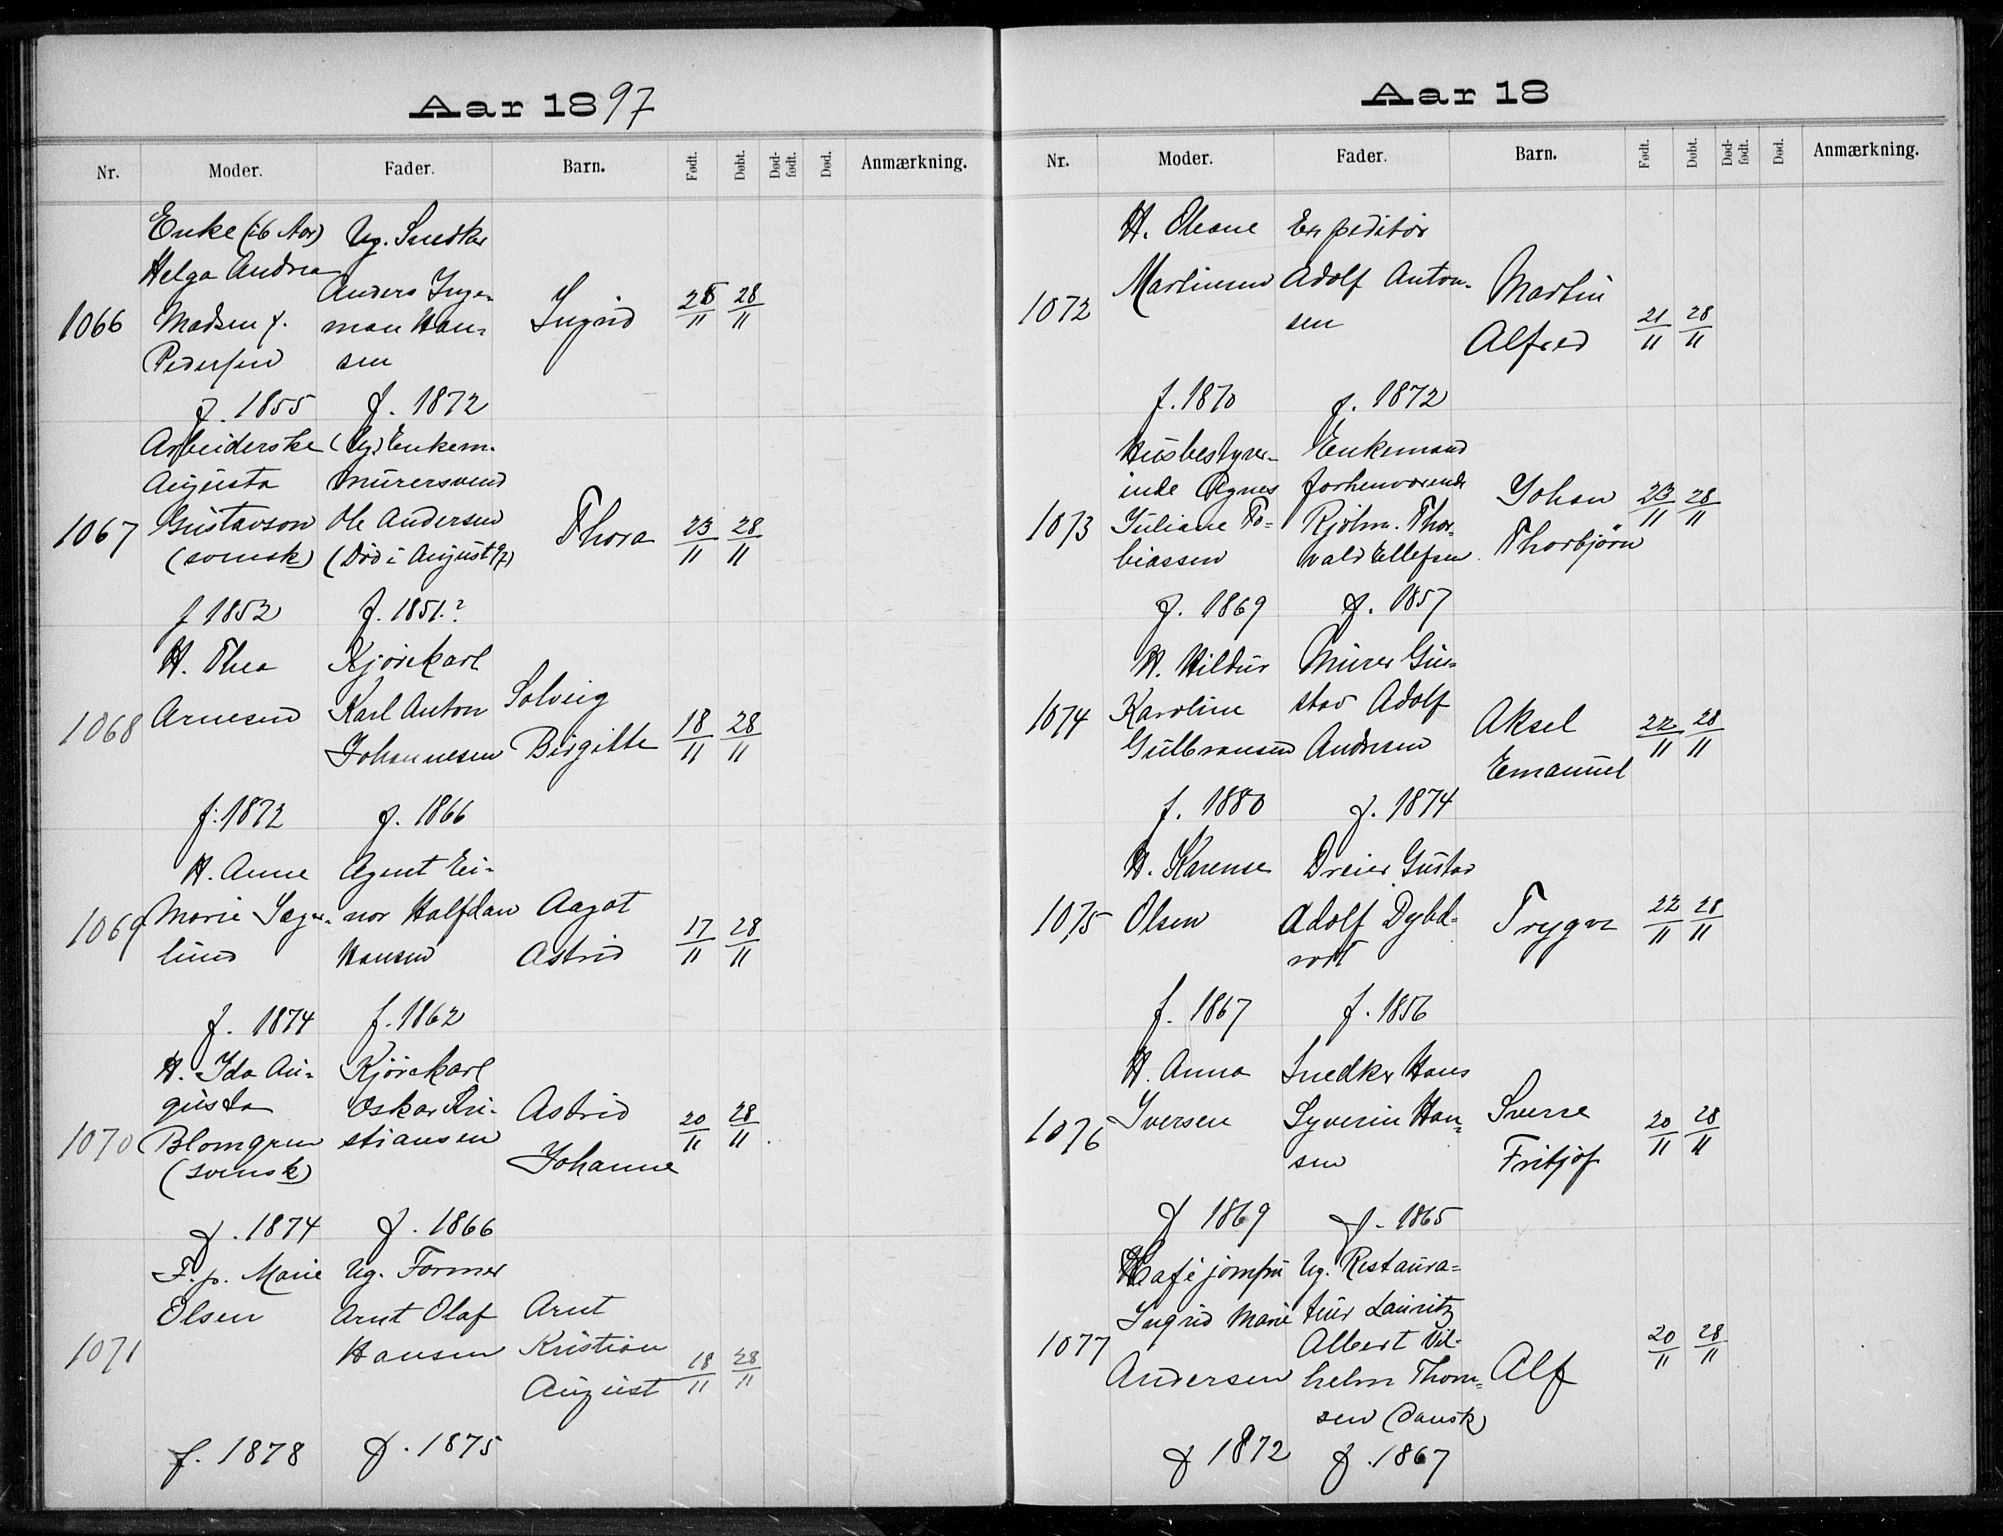 Aar 1897
Nr. Moder. Fader. Barn. Født. Døbt. Død-født. Død. Anmærkning.
1066
Enke (16 Aar)
Helga Andrea
Madsen f.
Pedersen
f. 1855
Ug. Snedker
Anders Inge-
man Han-
sen
f. 1872
Ingrid
25/11 28/11
1067
Arbeiderske
Augusta
Gustavson
(svensk)
f 1852
(Ug) Enkem.
Murersvend
Ole Andersen
(Død i August 97)
f. 1851.?
Thora
23/11 28/11
1068
H. Thea
Arnesen
f. 1872
Kjørekarl
Karl Anton
Johannesen
f. 1866
Solveig
Birgitte
18/11 28/11
1069
H. Anne
Marie
lund
f. 1874
Agent Ei-
nor Halfdan
Hansen
f. 1862
Aagot
Astrid
17/11 28/11
1070
H. Ida Au-
gusta
Blomgren
(svensk)
f. 1874
Kjørekarl
Oskar Kri-
stiansen
f. 1866
Astrid
Johanne
20/11 28/11
1071
F.p. Marie
Olsen
f. 1878
Ug. Former
Arnt Olaf
Hansen
f. 1875
Arnt
Kristian
August
18/11 28/11
Aar 18
Nr. Moder. Fader. Barn. Født. Døbt. Død-født. Død. Anmærkning.
1072
H. Oleane
Martinsen
f. 1870
Expeditør
Adolf Anton-
sen
f. 1872
Martin
Alfred
21/11 28/11
1073
Husbestyrer-
inde Agnes
Juliane To-
biassen
f. 1869
Enkemand
forhenværende
Kjøbm. Thor-
vald Ellefsen
f. 1857
Johan
Thorbjørn
23/11 28/11
1074
H. Hildur
Karoline
Gulbransen
f. 1880
Murer Gu-
stav Adolf
Andresen
f. 1874
Aksel
Emanuel
22/11 28/11
1075
H. Karense
Olsen
f. 1867
Dreier Gustav
Adolf Dybd-
rodt
f. 1856
Trygve
22/11 28/11
1076
H. Anna
Iversen
f 1869
Snedker Hans
Syverin Han-
sen
f. 1865
Sverre
Fritjof
20/11 28/11
1077
Kaféjomfru
Ingrid Marie
Andersen
f 1872
Ug. Restaura-
tur Lauritz
Albert Vil-
helm Thom-
sen (dansk)
f. 1867
Alf
20/11 28/11